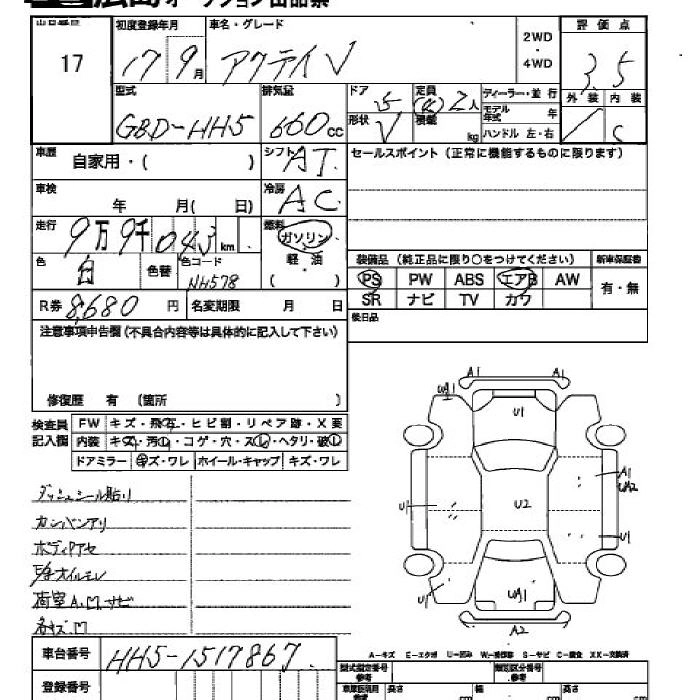 広島オークション出品票
出品番号 初度登録年月 車名・グレード 2WD・4WD 評価点
17 17 9月 アクティ V 3.5
型式 排気量 ドア 定員 ディーラー・並行 外装 内装
GBD-HH5 660cc 5 (4)2人 モデル年式 年 C
形状 V 積載 kg ハンドル 左・右
車歴 自家用・( ) シフト AT セールスポイント(正常に機能するものに限ります)
車検 年 月( 日) 冷房 AC
走行 9万9千043km 燃料 ガソリン
軽油
( )
色 白 色替 色コード NH578
装備品(純正品に限り○をつけてください) 新車保証書
PS PW ABS エアB AW 有・無
SR ナビ TV カワ
R券 8,680円 名変期限 月 日
後日品
注意事項申告欄(不具合内容等は具体的に記入して下さい)
修復歴 有 (箇所 )
検査員記入欄 FW キズ・飛石・ヒビ割・リペア跡・X要
内装 キズ・汚れ・コゲ・穴・スレ・ヘタリ・破れ
ドアミラー キズ・ワレ ホイール・キャップ キズ・ワレ
ダッシュシール貼り
カンバンアリ
ボディアセ
荷室A.M.サビ
各キズ.M
A1 A1
U1
A1
U2
U1
U1
U1
A2
A-キズ E-エクボ U-凹み W-補修跡 S-サビ C-腐食 XX-交換済
車台番号 HH5-1517867
型式指定番号 参考 類別区分番号 参考
登録番号 長さ cm 幅 cm 高さ cm